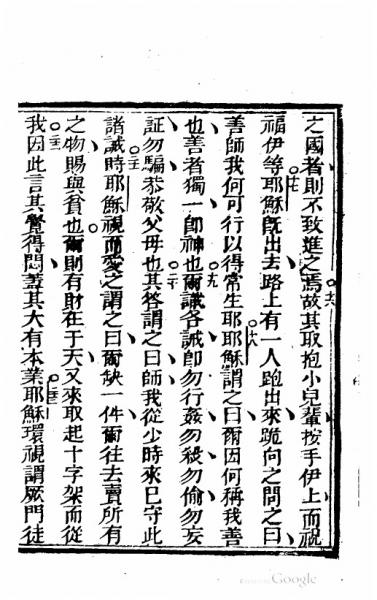 之國者則不致進之焉十六故其取抱小兒輩按手伊上而視
福伊等十七耶穌既出去路上有一人跑出來跪向之問之曰
善師我何可行以得常生耶十八耶穌謂之曰爾因何稱我善
也善者獨一即神也十九爾識各誡即勿行姦勿殺勿偷勿妄
証勿騙恭敬父母也二十其答謂之曰師我從少時來已守此
諸誡時二一耶穌視而愛之謂之曰爾缺一件爾往去賣所有
之物賜與貧也爾則有財在于天又來取起十字架而從
我二二因此言其覺得悶蓋其大有本業二三耶穌環視謂厥門徒
Google